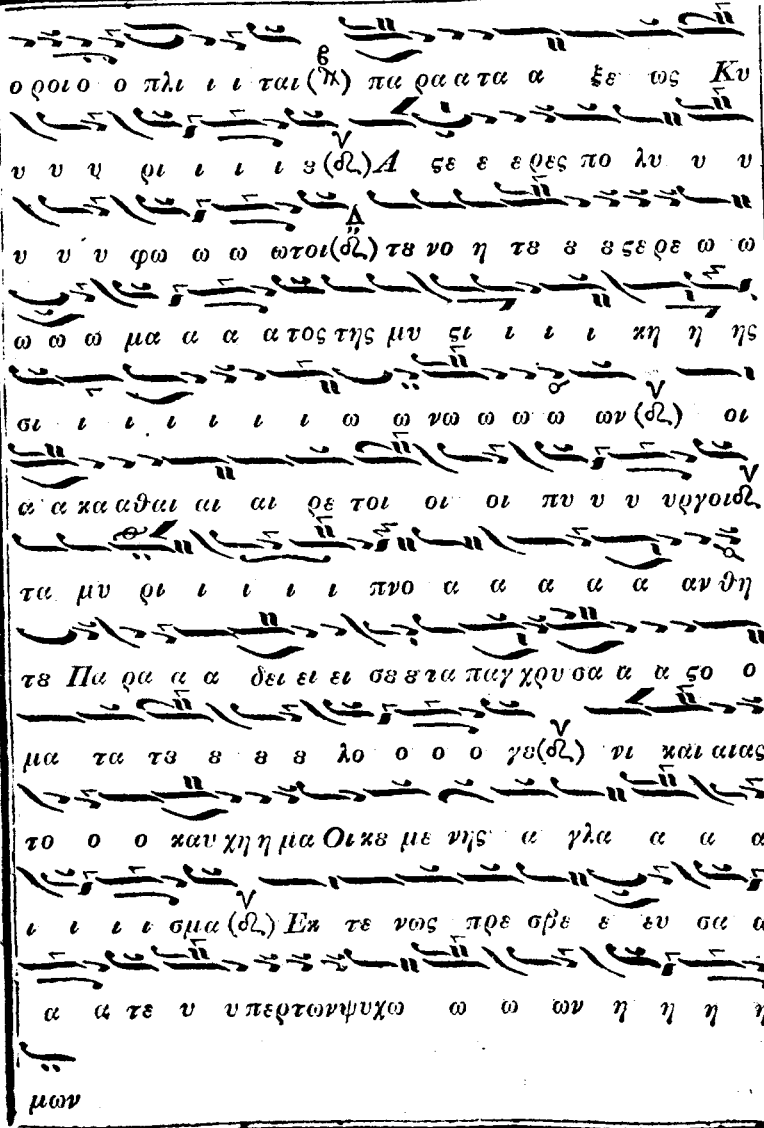 ο ροι ο ο πλι ι ι ται (π) πα ρα α τα α ξε ως Κυ
υ υ υ ρι ι ι ι ȣ (δ) Α ϛε ε ε ρες πο λυ υ υ
υ υ υ φω ω ω ωτοι (δ) τȣ νο η τȣ ȣ ȣ ϛε ρε ω ω
ω ω ω μα α α α τος της μυ ϛι ι ι ι κη η ης
σι ι ι ι ι ι ι ω ω νω ω ω ω ων (δ) οι
α α κα αθαι αι αι ρε τοι οι οι πυ υ υ υργοι δ
τα μυ ρι ι ι ι ι πνο α α α α α αν θη
τȣ Πα ρα α α δει ει ει σȣ ȣ τα παγ χρυ σα α α ϛο ο
μα τα τȣ ȣ ȣ ȣ λο ο ο ο γȣ (δ) νι και αιας
το ο ο καυ χη η μα Οι κȣ με νης α γλα α α α
ι ι ι ι σμα (δ) Εκ τε νως πρε σβε ε ευ σα α
α α τε υ υπερτωνψυχω ω ω ων η η η η
μων